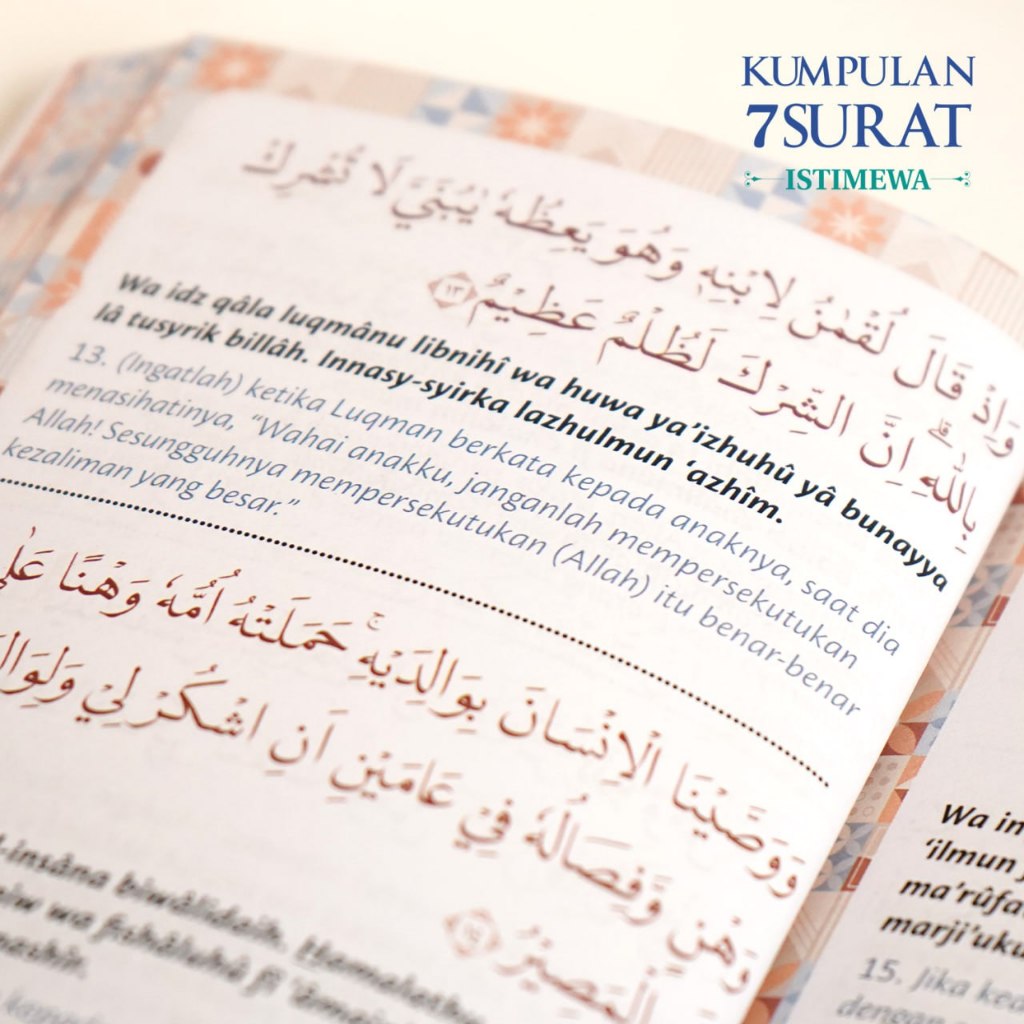 KUMPULAN
7SURAT
ISTIMEWA
وَاِذْ قَالَ لُقْمٰنُ لِابْنِهٖ وَهُوَ يَعِظُهٗ يٰبُنَيَّ لَا تُشْرِكْ
بِاللّٰهِ ۗاِنَّ الشِّرْكَ لَظُلْمٌ عَظِيْمٌ ١٣
Wa idz qâla luqmânu libnihî wa huwa ya’izhuhû yâ bunayya
lâ tusyrik billâh. Innasy-syirka lazhulmun ‘azhîm.
13. (Ingatlah) ketika Luqman berkata kepada anaknya, saat dia
menasihatinya, “Wahai anakku, janganlah mempersekutukan
Allah! Sesungguhnya mempersekutukan (Allah) itu benar-benar
kezaliman yang besar.”
وَوَصَّيْنَا الْاِنْسَانَ بِوَالِدَيْهِۚ حَمَلَتْهُ اُمُّهٗ وَهْنًا
وَهْنٍ وَّفِصَالُهٗ فِيْ عَامَيْنِ اَنِ اشْكُرْ لِيْ
الْمَصِيْرُ ١٤
-insâna biwâlidaih. Hamalathu
wa fishâluhû fî
Wa in
‘ilmun
ma’rûfa
marji’uku
15. Jika
dengan